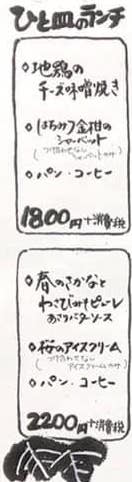 ひと皿のランチ
◇地鶏の
チーズ味噌焼き
◇はちみつ金柑の
シャーベット
◇パン・コーヒー
1800円+消費税
◇春のさかなと
わさびみそピューレ
あさりバターソース
◇桜のアイスクリーム
◇パン・コーヒー
2200円+消費税